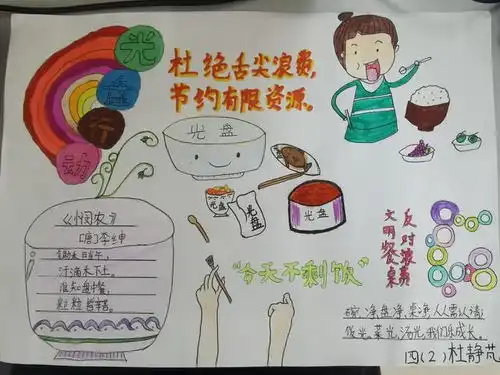 光
盘
行
动
杜绝舌尖浪费,
节约有限资源。
光盘
光盘
光盘
光盘
《悯农》
[唐]李绅
锄禾日当午,
汗滴禾下土。
谁知盘中餐,
粒粒皆辛苦。
“今天不剩饭”
反对浪费
文明餐桌
碗净,盘净,桌净,人人需认清
饭光,菜光,汤光,我们乐成长。
四(2)杜静芃